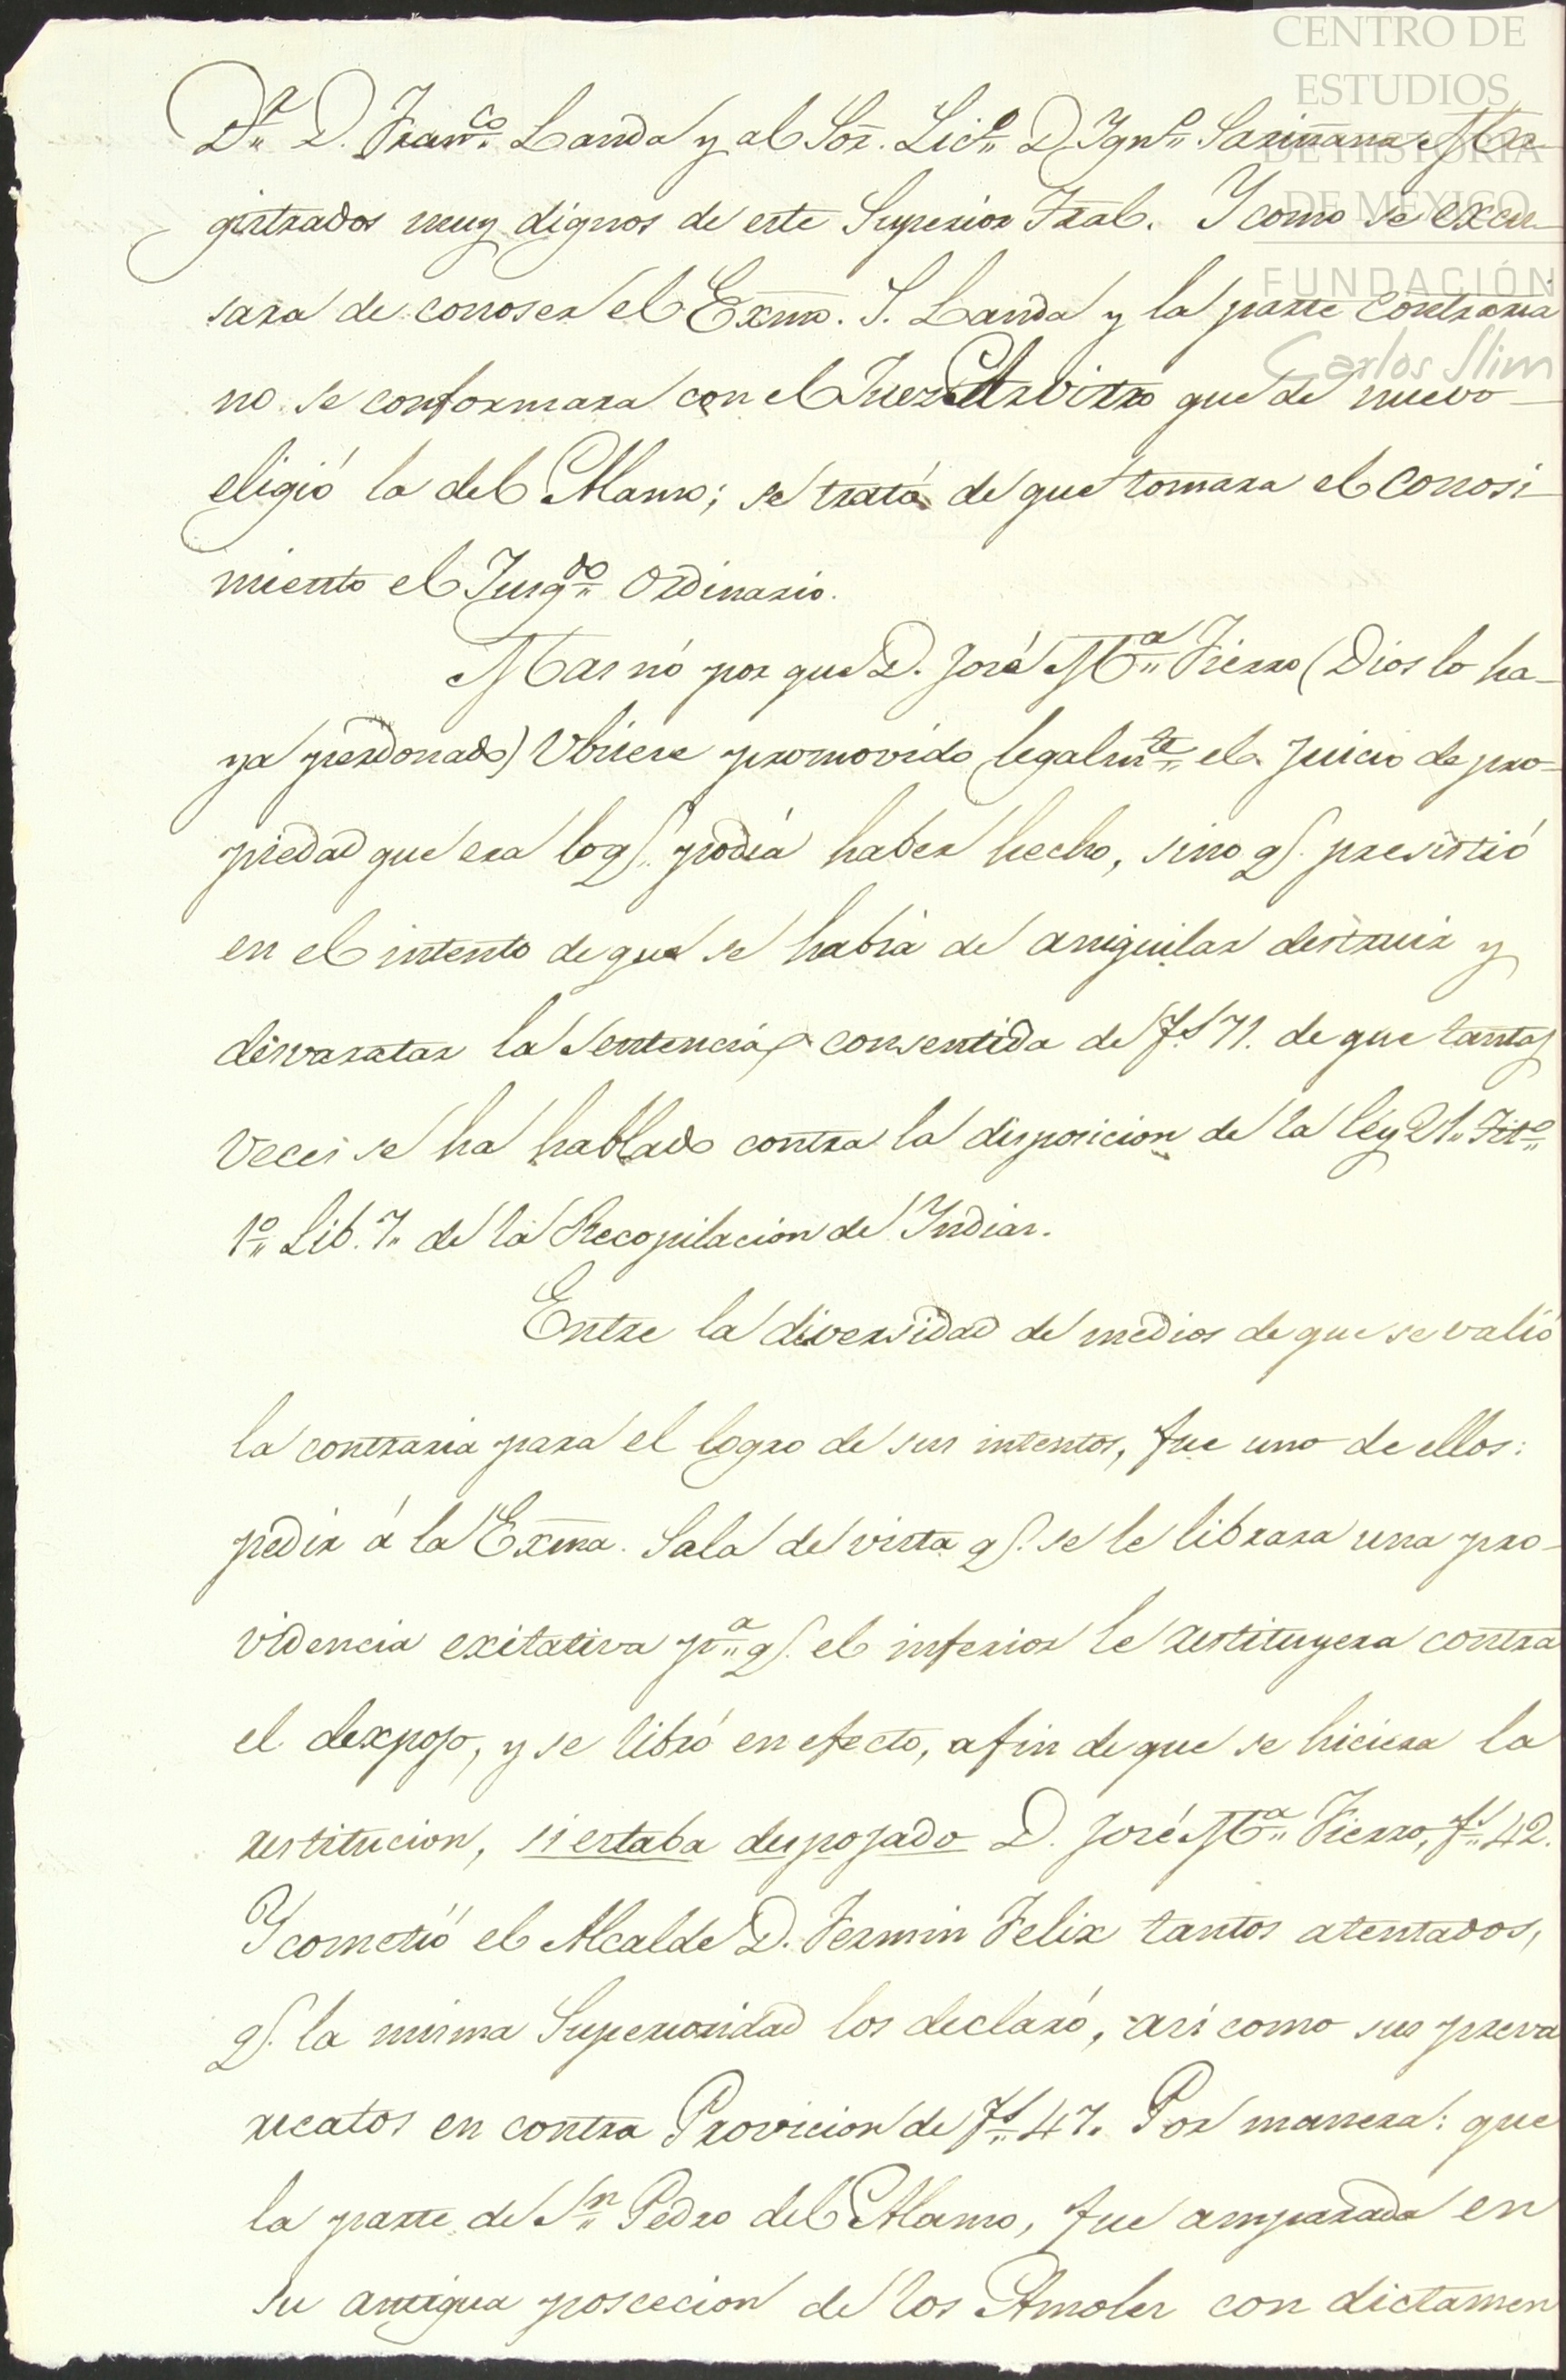 CENTRO DE
ESTUDIOS
DE HISTORIA
DE MÉXICO
FUNDACIÓN
Carlos Slim
D.ª D. Fran.co Landa y al Sor. Lic.o D. Ygn.o Sariñana Ma-
gistrados muy dignos de este Superior Tral. Y como se excu-
sara de conoser el Exmo. S. Landa y la parte contraria
no se conformara con el Juez Arvitro que de nuevo
eligió la del Alamo; se trató de que tomara el conosi-
miento el Jusg.do Ordinario.
Mas nó por que D. José M.a Fierro (Dios lo ha-
ya perdonado) Ubiere promovido legalm.te el Juicio de pro-
piedad que era lo q. podia haber hecho, sino q. presistió
en el intento de que se habia de aniquilar destruir y
desvaratar la Sentencia consentida de f.s 71. de que tantas
veces se ha hablado contra la disposicion de la ley 21. Tit.o
1.o Lib. 7. de la Recopilacion de Yndias.
Entre la diversidad de medios de que se valió
la contraria para el logro de sus intentos, fue uno de ellos:
pedir á la Exma. Sala de vista q. se le librara una pro-
videncia exitativa p.a q. el inferior le restituyera contra
el dexpojo, y se libró en efecto, afin de que se hiciera la
restitucion, si estaba despojado D. José M.a Fierro, f.s 42.
Y cometió el Alcalde D. Fermin Felix tantos atentados,
q. la misma Superioridad los declaró, asi como sus preva
ricatos en contra Provicion de f.s 47. Por manera: que
la parte de S.n Pedro del Alamo, fue amparada en
su antigua poscecion de los Amoles con dictamen